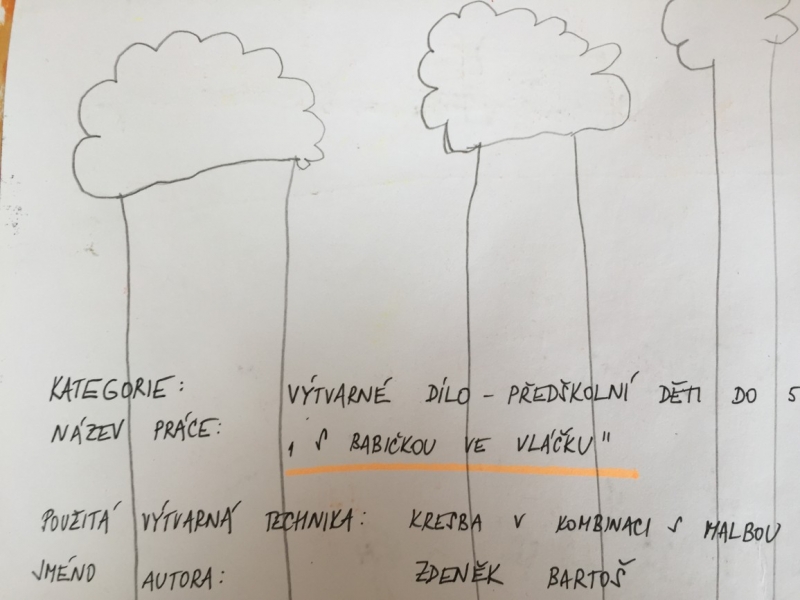 KATEGORIE: VÝTVARNÉ DÍLO - PŘEDŠKOLNÍ DĚTI DO 5
NÁZEV PRÁCE: „S BABIČKOU VE VLÁČKU"
POUŽITÁ VÝTVARNÁ TECHNIKA: KRESBA V KOMBINACI S MALBOU
JMÉNO AUTORA: ZDENĚK BARTOŠ